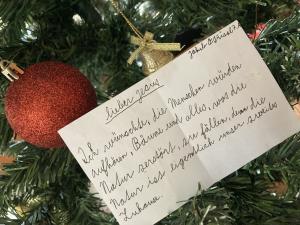 lieber Jesus
Ich wünschte, die Menschen würden
aufhören, Bäume und alles, was die
Natur zerstört, zu fällen, denn die
Natur ist eigentlich unser zweites
Zuhause.